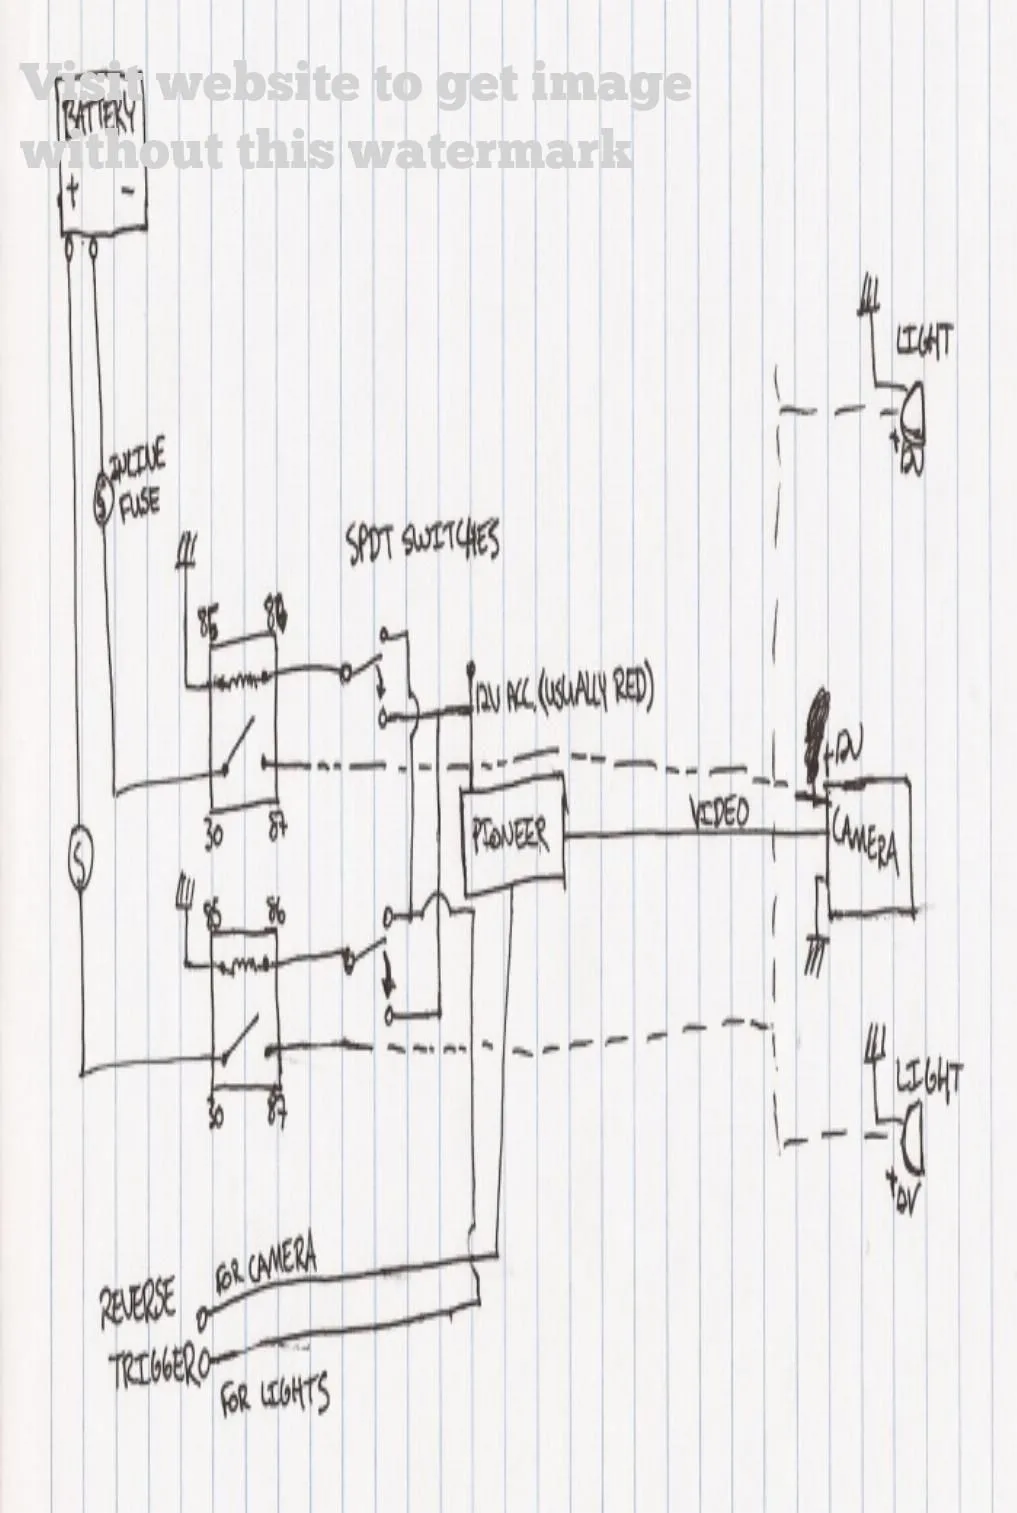 Visit website to get image
without this watermark
BATTERY
+ -
LIGHT
+12V
INLINE
FUSE
SPDT SWITCHES
85
30 87
12V ACC. (USUALLY RED)
+12V
PIONEER
VIDEO
CAMERA
85 86
30 87
LIGHT
+12V
FOR CAMERA
REVERSE
TRIGGER
FOR LIGHTS